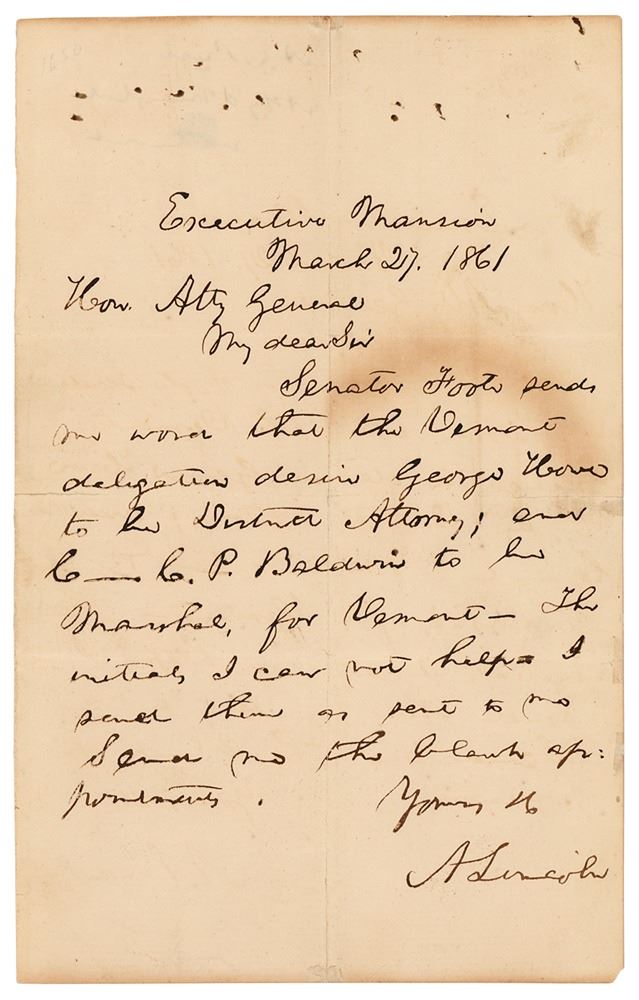 Executive Mansion
March 27. 1861
Hon. Atty General
My dear Sir
Senator Foote sends
me word that the Vermont
delegation desire George Howe
to be District Attorney; and
C—— C. P. Baldwin to be
Marshal, for Vermont — The
initials I can not help — I
send them as sent to me
Send me the blank ap:
pointments.
Yours &c
A Lincoln